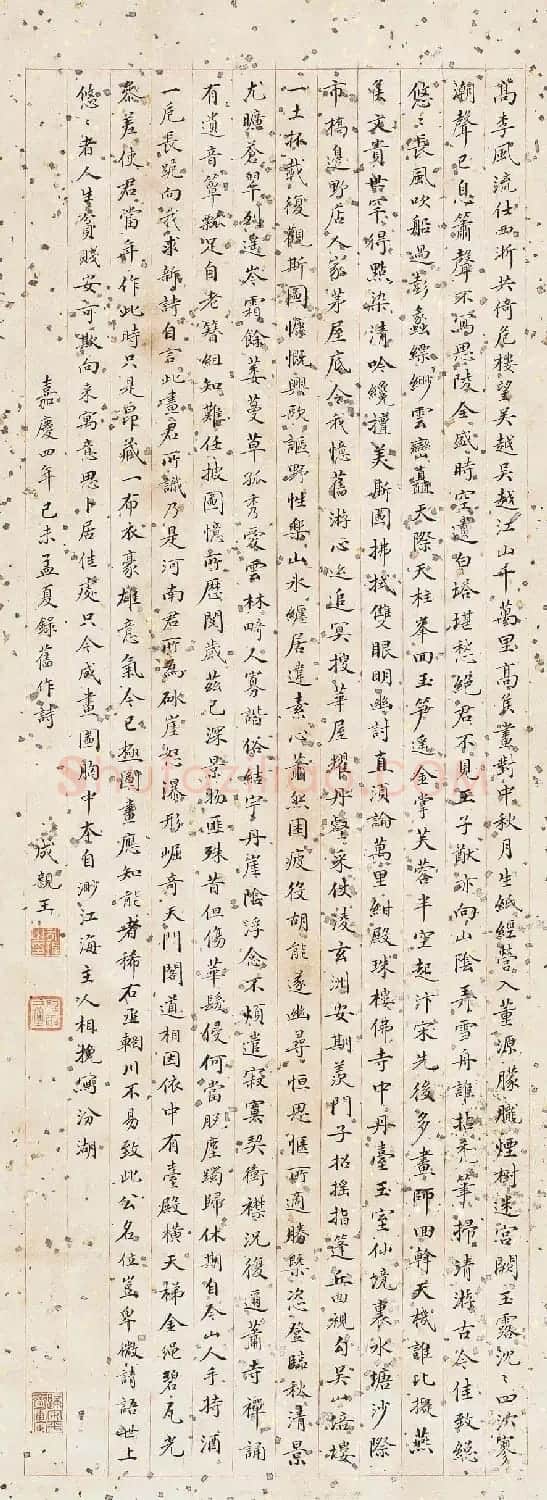 高李風流仕西浙共倚危樓望吳越吳越江山千萬里高侯畫對中秋月生紙經營入董源朦朧煙樹迷宮闕玉露沈〻四泬寥
潮聲已息簫聲不寫思陵全盛時空遺白塔堪愁絕君不見王子猷亦向山陰弄雪舟誰拈禿筆掃清游古今佳致總
悠〻長風吹船過彭蠡縹緲雲巒矗天際天柱峯回玉筍遙金掌芙蓉半空起汴宋先後多畫師回斡天機誰比擬燕
侯衷貴世罕得點染清吟纔擅美斯圖拂拭雙眼明幽討直須論萬里紺殿珠樓佛寺中丹臺玉室仙境裏水塘沙際
市橋邊野店人家茅屋底令我憶舊游心迹追冥搜華屋擢丹壑采仗凌玄洲安期羨門子招搖指蓬丘回視勾吳山培塿
一土抔載復觀斯圖慷慨興歌謳野性樂山水纏居違素心蕭然困疲役胡能遂幽尋恒思愜所適勝槩恣登臨秋清景
尤曠蒼翠紛遙岑霜餘萎蔓草孤秀愛雲林畸人寡諧俗結宇丹崖陰浮念不煩遣寂寞契衝襟況復通蕭寺禪誦
有遺音簞瓢足自老簪組知難任披圖憶所歷閱歲茲已深景物匪殊昔但傷華髮侵何當脫塵躅歸休期自今山人手持酒
一卮長跪向我求新詩自言此畫君所識乃是河南君所為破崖怒瀑形崛奇天門閣道相因依中有臺殿橫天梯金繩碧瓦光
參差使君當年作此時只是昂藏一布衣豪雄意氣今已極圖畫應知能者稀右丞輞川不易致此公名位豈卑微請語世上
悠〻者人生貧賤安可欺向來寓意思卜居佳處只今成畫圖胸中本自渺江海主人相挽痾汾湖
嘉慶四年己未孟夏錄舊作詩
成親王
Shufaziliao.com